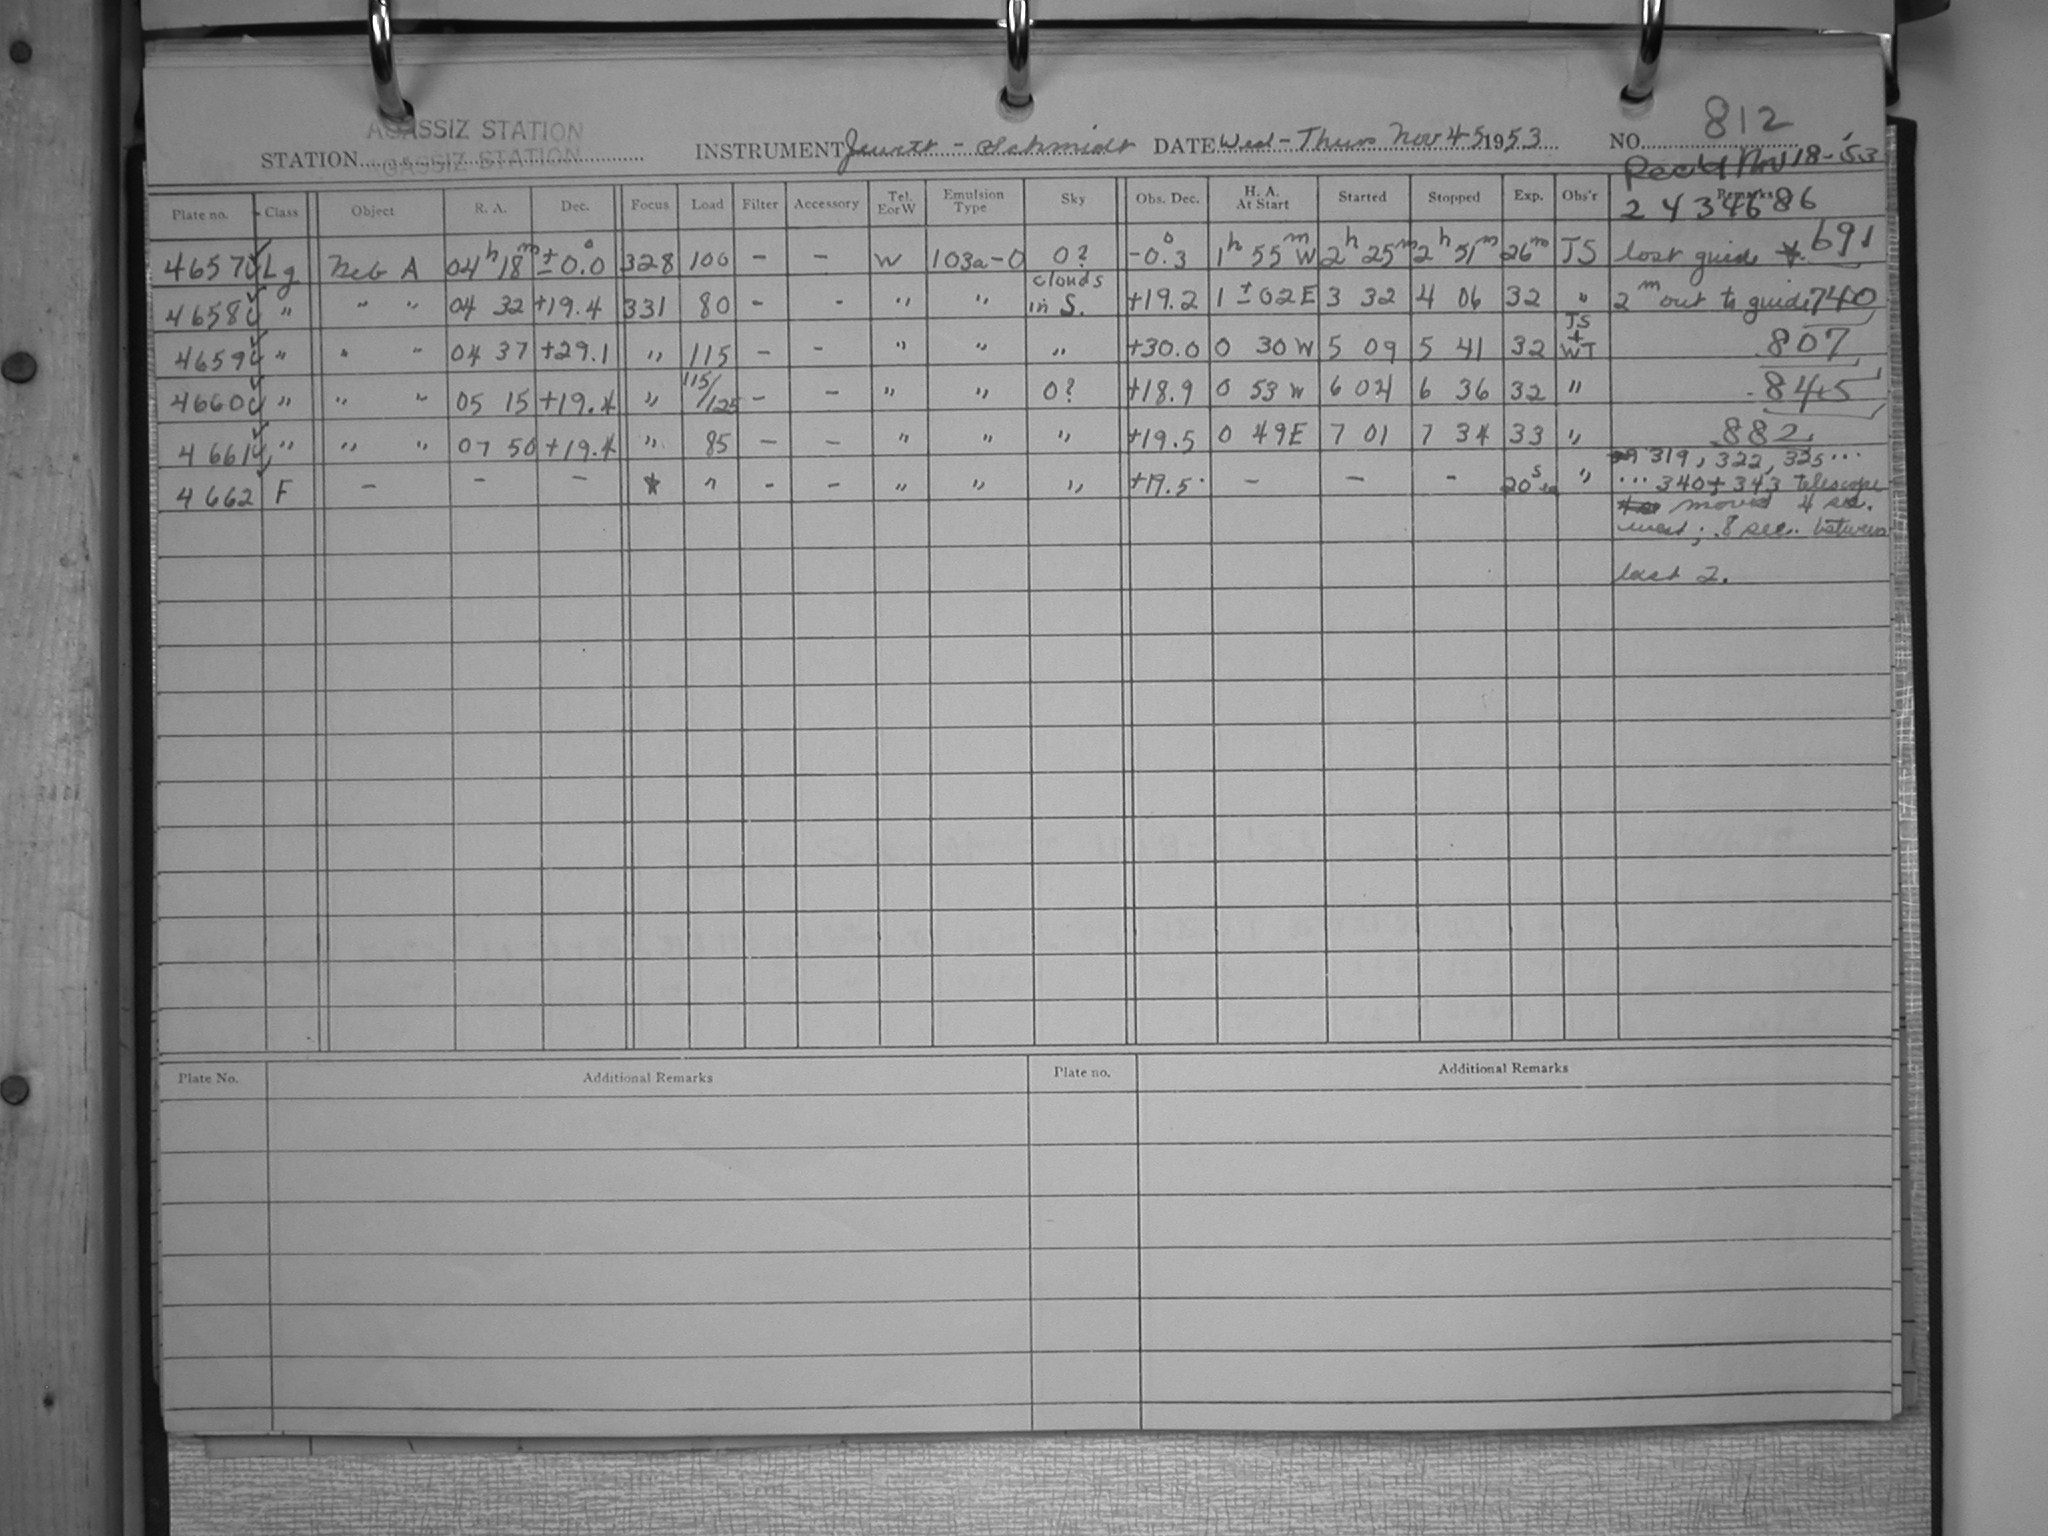 AGASSIZ STATION
STATION AGASSIZ STATION INSTRUMENT Jewett - Schmidt DATE Wed - Thurs Nov 4-5 1953 NO. 812
Rec'd Nov 18-'53
Plate no. Class Object R. A. Dec. Focus Load Filter Accessory Tel. E or W Emulsion Type Sky Obs. Dec. H. A. At Start Started Stopped Exp. Obs'r Remarks
2434686
4657 ✓ Lg Neb A 04h 18m ±0.0° 328 100 - - W 103a-O 0? -0.°3 1h 55m W 2h 25m 2h 51m 26m JS lost guide *. 691
4658 ✓ " " " 04 32 +19.4 331 80 - - " " clouds in S. +19.2 1 ±02E 3 32 4 06 32 " 2m out to guide 740
4659 ✓ " " " 04 37 +29.1 " 115 - - " " " +30.0 0 30 W 5 09 5 41 32 JS + WT .807
4660 ✓ " " " 05 15 +19.4 " 115/125 - - " " 0? +18.9 0 53 W 6 04 6 36 32 " .845
4661 ✓ " " " 07 50 +19.4 " 85 - - " " " +19.5 0 49E 7 01 7 34 33 " .882
4662 ✓ F - - - * " - - " " " +19.5 - - - 20s ea " 319, 322, 325...
... 340 + 343 telescope
moved 4 sec.
west; 8 sec. between
last 2.
Plate No. Additional Remarks Plate no. Additional Remarks